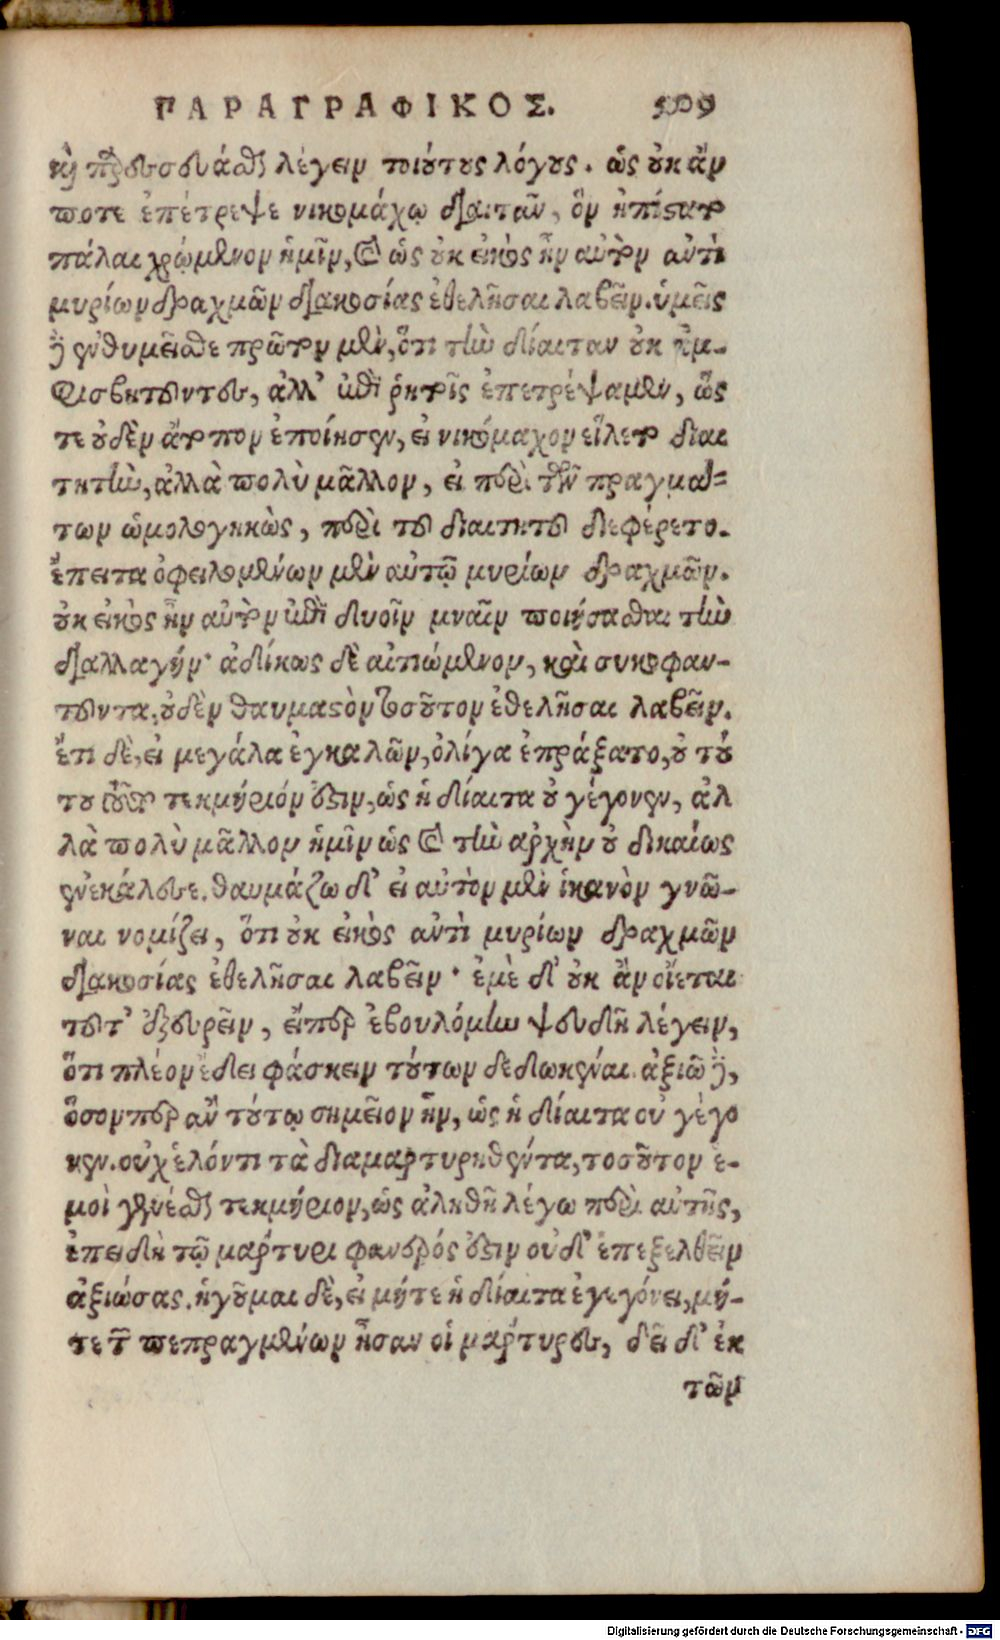 ΠΑΡΑΓΡΑΦΙΚΟΣ. 509
καὶ παρασκευάσασθαι λέγειν τοιούτους λόγους. ὡς οὐκ ἄν
ποτε ἐπέτρεψε νικομάχῳ διαιτᾶν, ὃν ἠπίστατο
πάλαι χρώμενον ἡμῖν, καὶ ὡς οὐκ εἰκὸς ἦν αὐτὸν αὐτὶ
μυρίων δραχμῶν διακοσίας ἐθελῆσαι λαβεῖν. ὑμεῖς
δὲ ἐνθυμεῖσθε πρῶτον μὲν, ὅτι τὴν δίαιταν οὐκ ἠμ-
φισβητοῦντες, ἀλλ' ἐπὶ ῥητοῖς ἐπετρέψαμεν, ὥς
τε οὐδὲν ἄτοπον ἐποίησεν, εἰ νικόμαχον εἵλετο διαι
τητὴν, ἀλλὰ πολὺ μᾶλλον, εἰ περὶ τῶν πραγμά-
των ὡμολογηκὼς, περὶ τοῦ διαιτητοῦ διεφέρετο.
ἔπειτα ὀφειλομένων μὲν αὐτῷ μυρίων δραχμῶν.
οὐκ εἰκὸς ἦν αὐτὸν ἐπὶ δυοῖν μναῖν ποιήσασθαι τὴν
διαλλαγήν· ἀδίκως δὲ αἰτιώμενον, καὶ συκοφαν-
τοῦντα, οὐδὲν θαυμαστὸν τοσοῦτον ἐθελῆσαι λαβεῖν.
ἔτι δὲ, εἰ μεγάλα ἐγκαλῶν, ὀλίγα ἐπράξατο, οὐ τού
του τοῦτο τεκμήριόν ἐστιν, ὡς ἡ δίαιτα οὐ γέγονεν, ἀλ
λὰ πολὺ μᾶλλον ἡμῖν ὡς καὶ τὴν ἀρχὴν οὐ δικαίως
ἐνεκάλεσε. θαυμάζω δ' εἰ αὐτὸν μὲν ἱκανὸν γνῶ-
ναι νομίζει, ὅτι οὐκ εἰκὸς ἀντὶ μυρίων δραχμῶν
διακοσίας ἐθελῆσαι λαβεῖν· ἐμὲ δ' οὐκ ἂν οἴεται
τοῦτ' ἐξευρεῖν, εἴπερ ἐβουλόμην ψευδῆ λέγειν,
ὅτι πλέον ἔδει φάσκειν τούτων δεδωκέναι. ἀξιῶ δὲ,
ὅσον περ ἂν τούτῳ σημεῖον ἦν, ὡς ἡ δίαιτα οὐ γέγο
νεν. οὐχ ἑλόντι τὰ διαμαρτυρηθέντα, τοσοῦτον ἐ-
μοὶ γενέσθαι τεκμήριον, ὡς ἀληθῆ λέγω περὶ αὐτῆς,
ἐπειδὴ τῷ μάρτυρι φανερός ἐστιν οὐδ' ἐπεξελθεῖν
ἀξιώσας. ἡγοῦμαι δὲ, εἰ μήτε ἡ δίαιτα ἐγεγόνει, μή-
τε τῶν πεπραγμένων ἦσαν οἱ μάρτυρες, δεῖ δ' ἐκ
τῶν
Digitalisierung gefördert durch die Deutsche Forschungsgemeinschaft - DFG